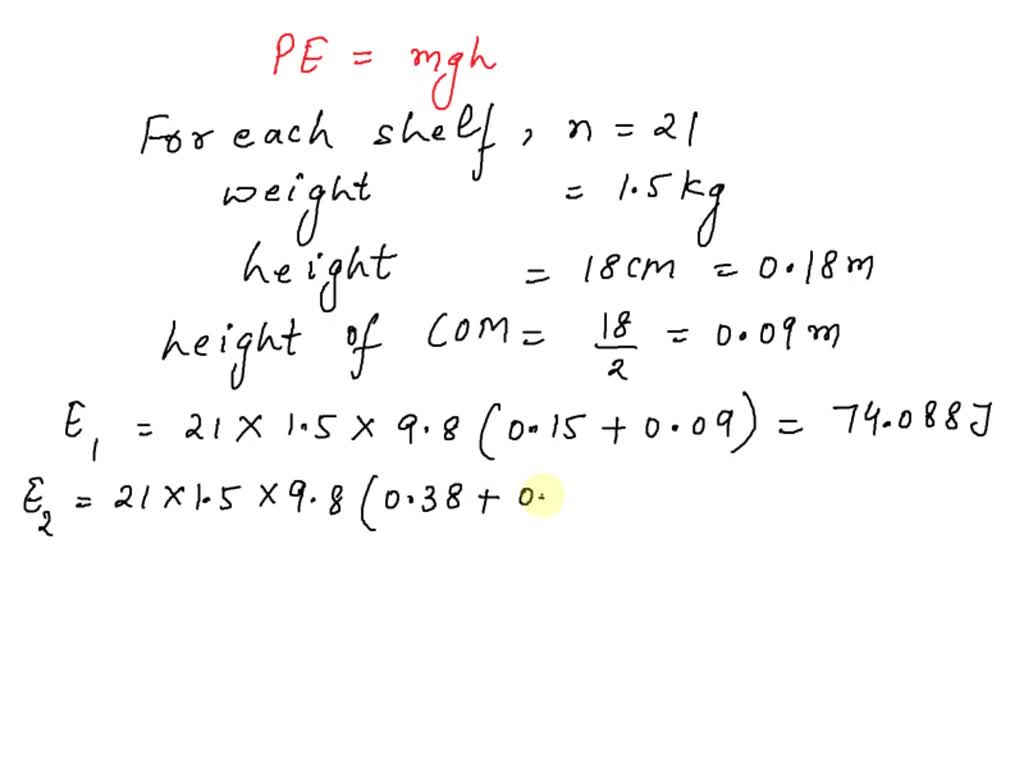 PE = mgh
For each shelf, n = 21
weight = 1.5 kg
height = 18 cm = 0.18 m
height of COM = 18/2 = 0.09 m
E₁ = 21 × 1.5 × 9.8 (0.15 + 0.09) = 74.088 J
E₂ = 21 × 1.5 × 9.8 (0.38 + 0.